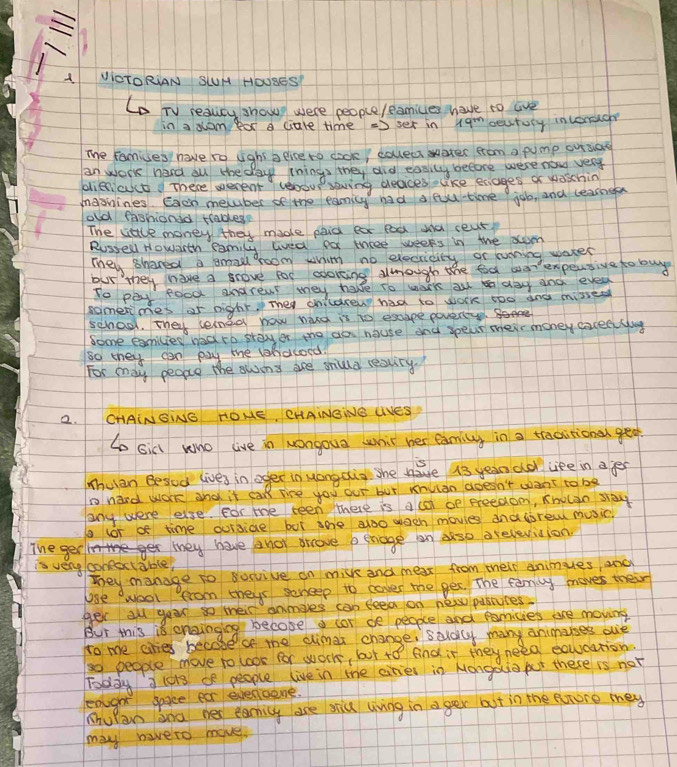 1 VICTORIAN SLUM HOUSES
↳ TV reality show were people/families have to live
in a slum for a little time => set in 19th century in London
The families have to light a fire to cook, collect water from a pump outside
an work hard all the day things they did easily before were now very
difficult. There werent labour saving devices like fridges or washin
mashines. Each member of the family had a full-time job, and learned
old fashioned trades.
The little money they made paid for food and rent.
Russell Howarth family lived for three weeks in the slum
They shared a small room whith no electricity or running water
but they have a stove for cooking although the was expensive to buy
To pay food and rent they have to work all day and even
sometimes at night. They children had to work too and missed
school. They learned how hard is to escape poverty.
Some families had to stay at the dos hause and spent their money carefully
so they can pay the landlord.
For may people the slums are still a reality.
2. CHAINGING HOME, CHAINGING LIVES
↳ Girl who live in Mongolia whit her family in a traditional ger.
Khulan Besud lives in a ger in Mongolia she is 13 year old life in a ger
is hard work and it can tire you out but Khulan doesn't want to be
any were else. For the teen there is a lot of freedom, Khulan stay
a lot of time outside but she also wach movies and music.
The ger in the ger they have a stove a fridge an also a television
is very confortable.
They manage to survive on milk and meat from their animales, and
use wool from theys scheep to cover the ger. The family moves their
ger all year so their animales can feed on new pastures.
But this is chainging becose a lot of people and families are moving
to the cities becose of the climat change, sadly many animales die
so people move to look for work, but to find it they need education.
Today a lots of people live in the cities in Mongolia but there is not
enught space for everyone.
Khulan and her family are still living in a ger but in the future they
may have to move.